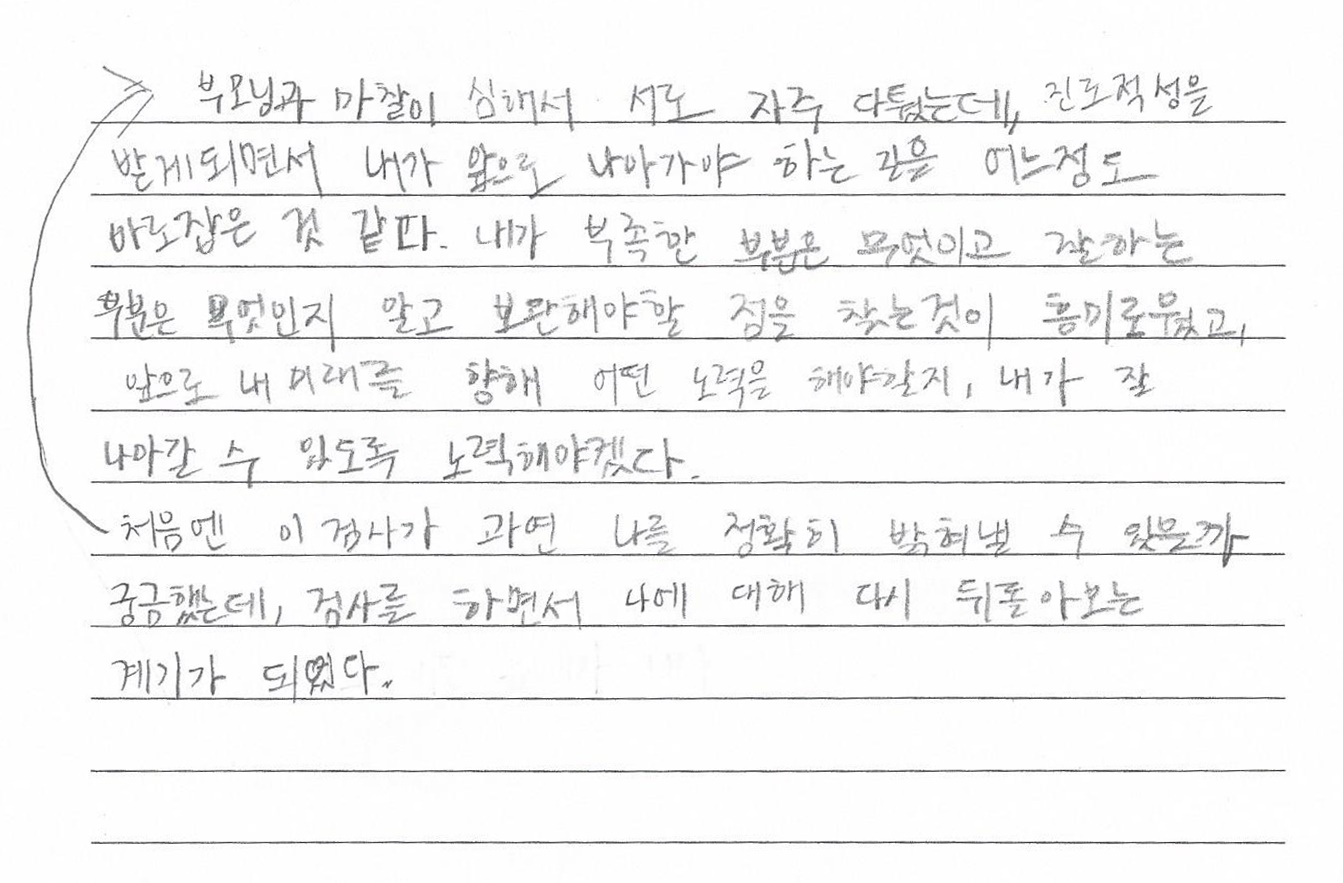 부모님과 마찰이 심해서 서로 자주 다퉜는데, 진로적성을
받게되면서 내가 앞으로 나아가야 하는 길을 어느정도
바로잡은 것 같다. 내가 부족한 부분은 무엇이고 잘하는
부분은 무엇인지 알고 보완해야할 점을 찾는것이 흥미로웠고,
앞으로 내 미래를 향해 어떤 노력을 해야할지, 내가 잘
나아갈 수 있도록 노력해야겠다.
처음엔 이 검사가 과연 나를 정확히 밝혀낼 수 있을까
궁금했는데, 검사를 하면서 나에 대해 다시 뒤돌아보는
계기가 되었다.